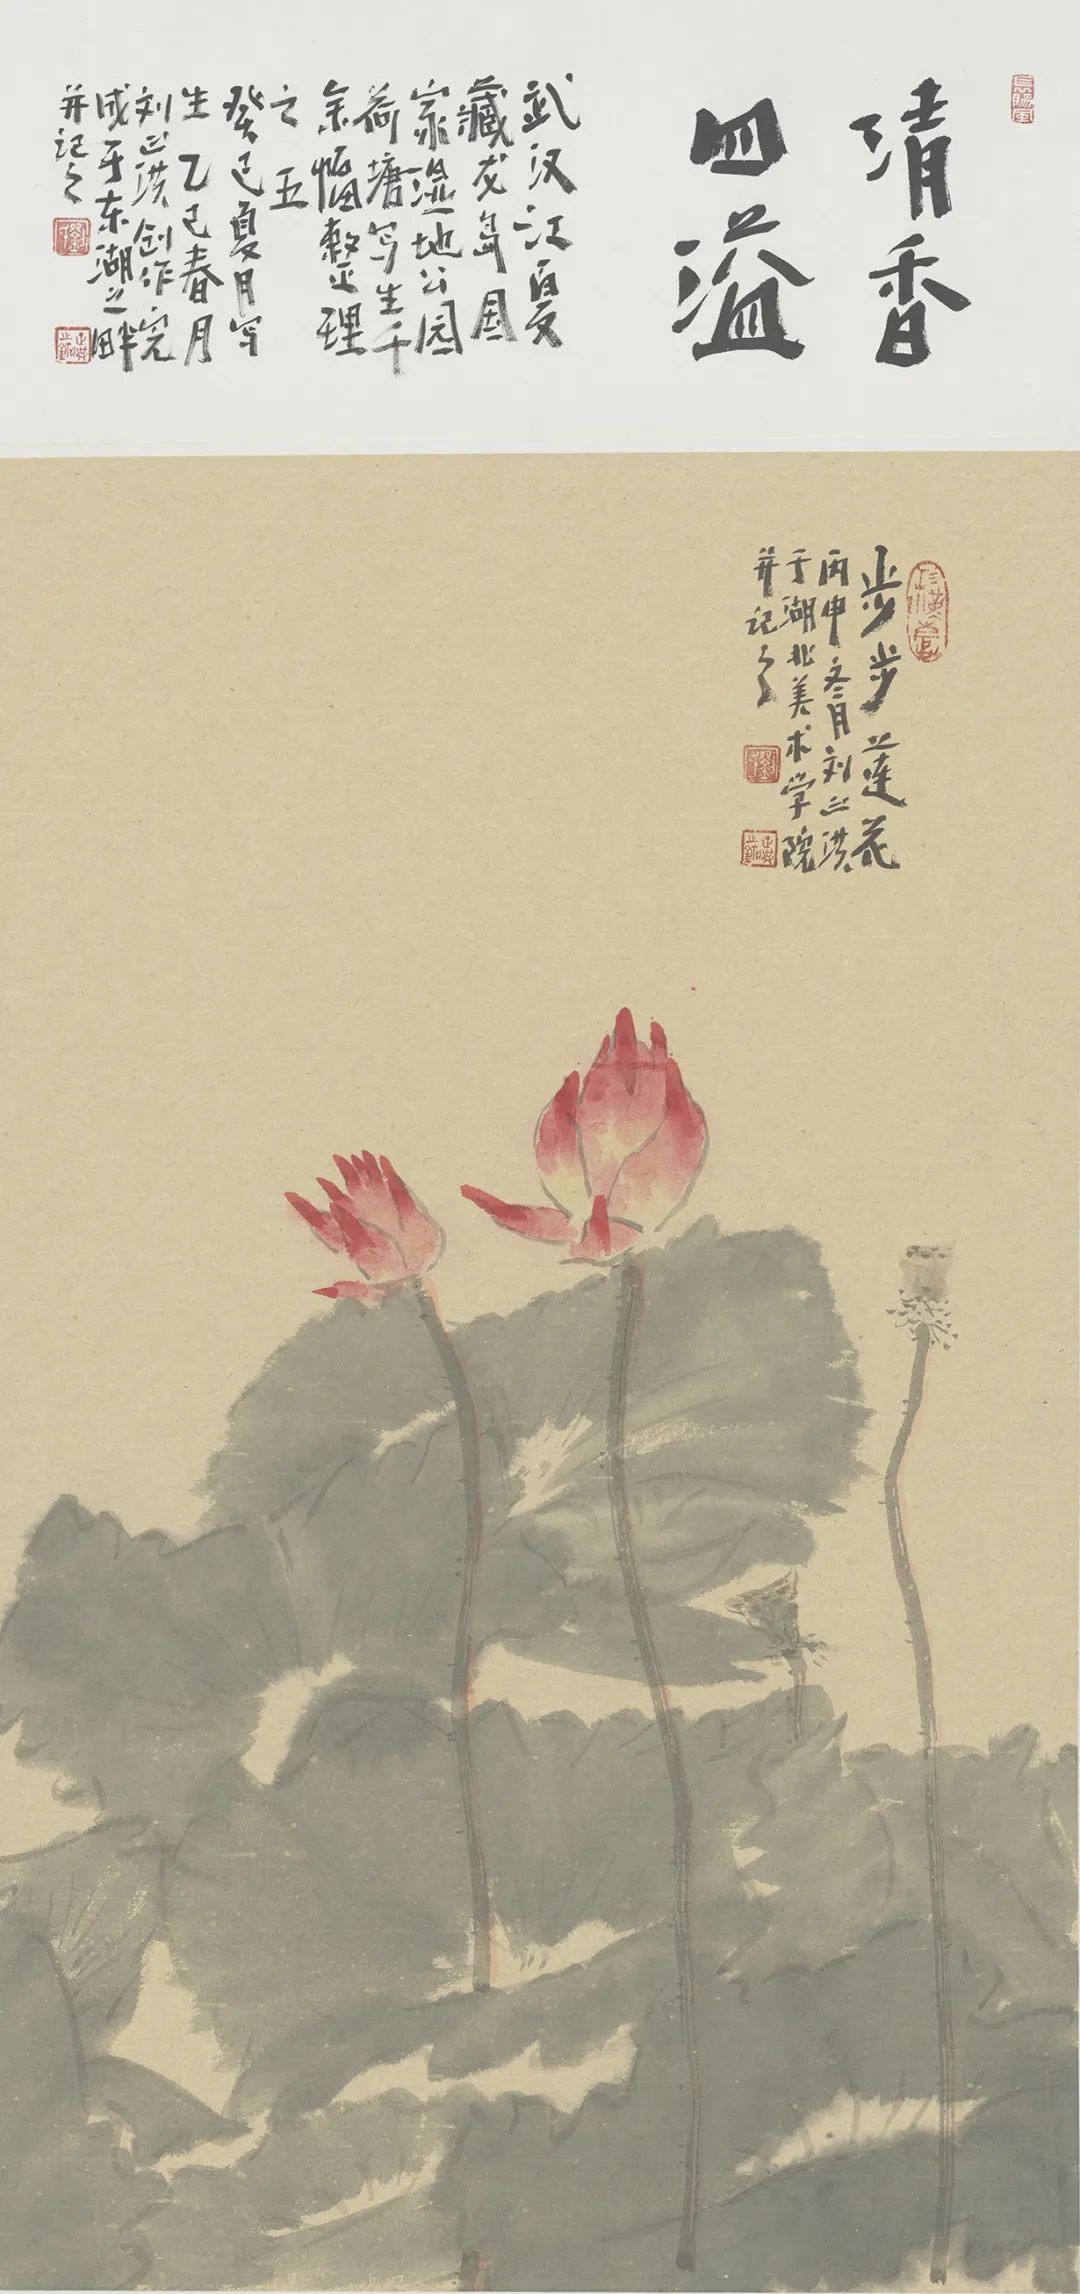 清香
四溢
武汉江夏
藏龙岛国
家湿地公园
荷塘写生千
余幅整理
之五
癸巳夏月写
生乙巳春月
刘正洪创作完
成于东湖之畔
并记之
步步莲花
丙申冬二月刘正洪
于湖北美术学院
并记之